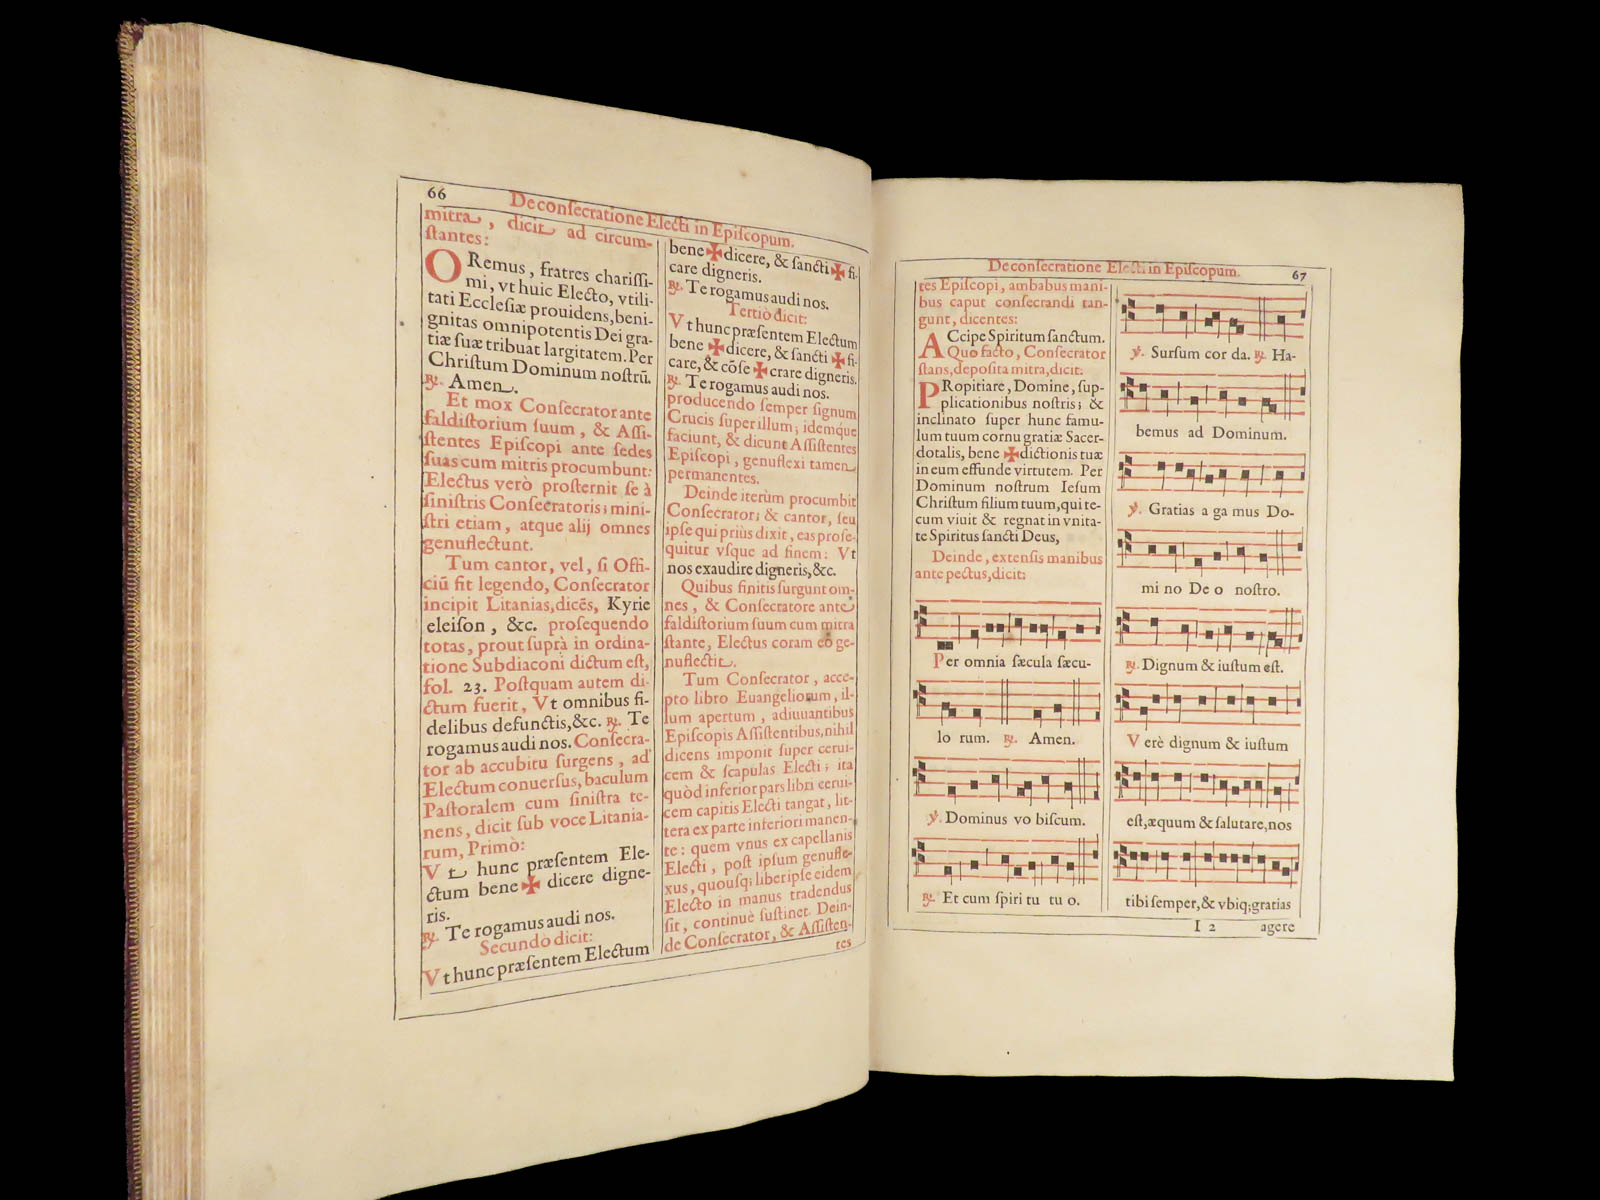 66
De consecratione Electi in Episcopum.
mitra, dicit ad circum-
stantes:
ORemus, fratres charissi-
mi, vt huic Electo, vtili-
tati Ecclesiæ prouidens, beni-
gnitas omnipotentis Dei gra-
tiæ suæ tribuat largitatem. Per
Christum Dominum nostrũ.
℟. Amen.
Et mox Consecrator ante
faldistorium suum, & Assi-
stentes Episcopi ante sedes
suas cum mitris procumbunt:
Electus verò prosternit se à
sinistris Consecratoris; mini-
stri etiam, atque alij omnes
genuflectunt.
Tum cantor, vel, si Offi-
ciũ fit legendo, Consecrator
incipit Litanias, dicẽs, Kyrie
eleison, &c. prosequendo
totas, prout suprà in ordina-
tione Subdiaconi dictum est,
fol. 23. Postquam autem di-
ctum fuerit, Vt omnibus fi-
delibus defunctis, &c. ℟. Te
rogamus audi nos. Consecra-
tor ab accubitu surgens, ad
Electum conuersus, baculum
Pastoralem cum sinistra te-
nens, dicit sub voce Litania-
rum, Primò:
Vt hunc præsentem Ele-
ctum bene ✠ dicere digne-
ris.
℟. Te rogamus audi nos.
Secundò dicit:
Vt hunc præsentem Electum
bene ✠ dicere, & sancti ✠ fi-
care digneris.
℟. Te rogamus audi nos.
Tertiò dicit:
Vt hunc præsentem Electum
bene ✠ dicere, & sancti ✠ fi-
care, & cõse ✠ crare digneris.
℟. Te rogamus audi nos.
producendo semper signum
Crucis super illum; idemque
faciunt, & dicunt Assistentes
Episcopi, genuflexi tamen
permanentes.
Deinde iterùm procumbit
Consecrator; & cantor, seu
ipse qui priùs dixit, eas prose-
quitur vsque ad finem: Vt
nos exaudire digneris, &c.
Quibus finitis surgunt om-
nes, & Consecratore ante
faldistorium suum cum mitra
stante, Electus coram eo ge-
nuflectit.
Tum Consecrator, acce-
pto libro Euangeliorum, il-
lum apertum, adiuuantibus
Episcopis Assistentibus, nihil
dicens imponit super cerui-
cem & scapulas Electi; ita
quòd inferior pars libri cerui-
cem capitis Electi tangat, lit-
tera ex parte inferiori manen-
te: quem vnus ex capellanis
Electi, post ipsum genufle-
xus, quousq; liber ipse eidem
Electo in manus tradendus
sit, continuè sustinet. Dein-
de Consecrator, & Assisten-
tes
De consecratione Electi in Episcopum.
67
tes Episcopi, ambabus mani-
bus caput consecrandi tan-
gunt, dicentes:
ACcipe Spiritum sanctum.
Quo facto, Consecrator
stans, deposita mitra, dicit:
PRopitiare, Domine, sup-
plicationibus nostris; &
inclinato super hunc famu-
lum tuum cornu gratiæ Sacer-
dotalis, bene ✠ dictionis tuæ
in eum effunde virtutem. Per
Dominum nostrum Iesum
Christum filium tuum, qui te-
cum viuit & regnat in vnita-
te Spiritus sancti Deus,
Deinde, extensis manibus
ante pectus, dicit:
Per omnia sæcula sæcu-
lo rum. ℟. Amen.
℣. Dominus vo biscum.
℟. Et cum spiri tu tu o.
℣. Sursum cor da. ℟. Ha-
bemus ad Dominum.
℣. Gratias a ga mus Do-
mi no De o nostro.
℟. Dignum & iustum est.
Verè dignum & iustum
est, æquum & salutare, nos
tibi semper, & vbiq; gratias
I 2
agere